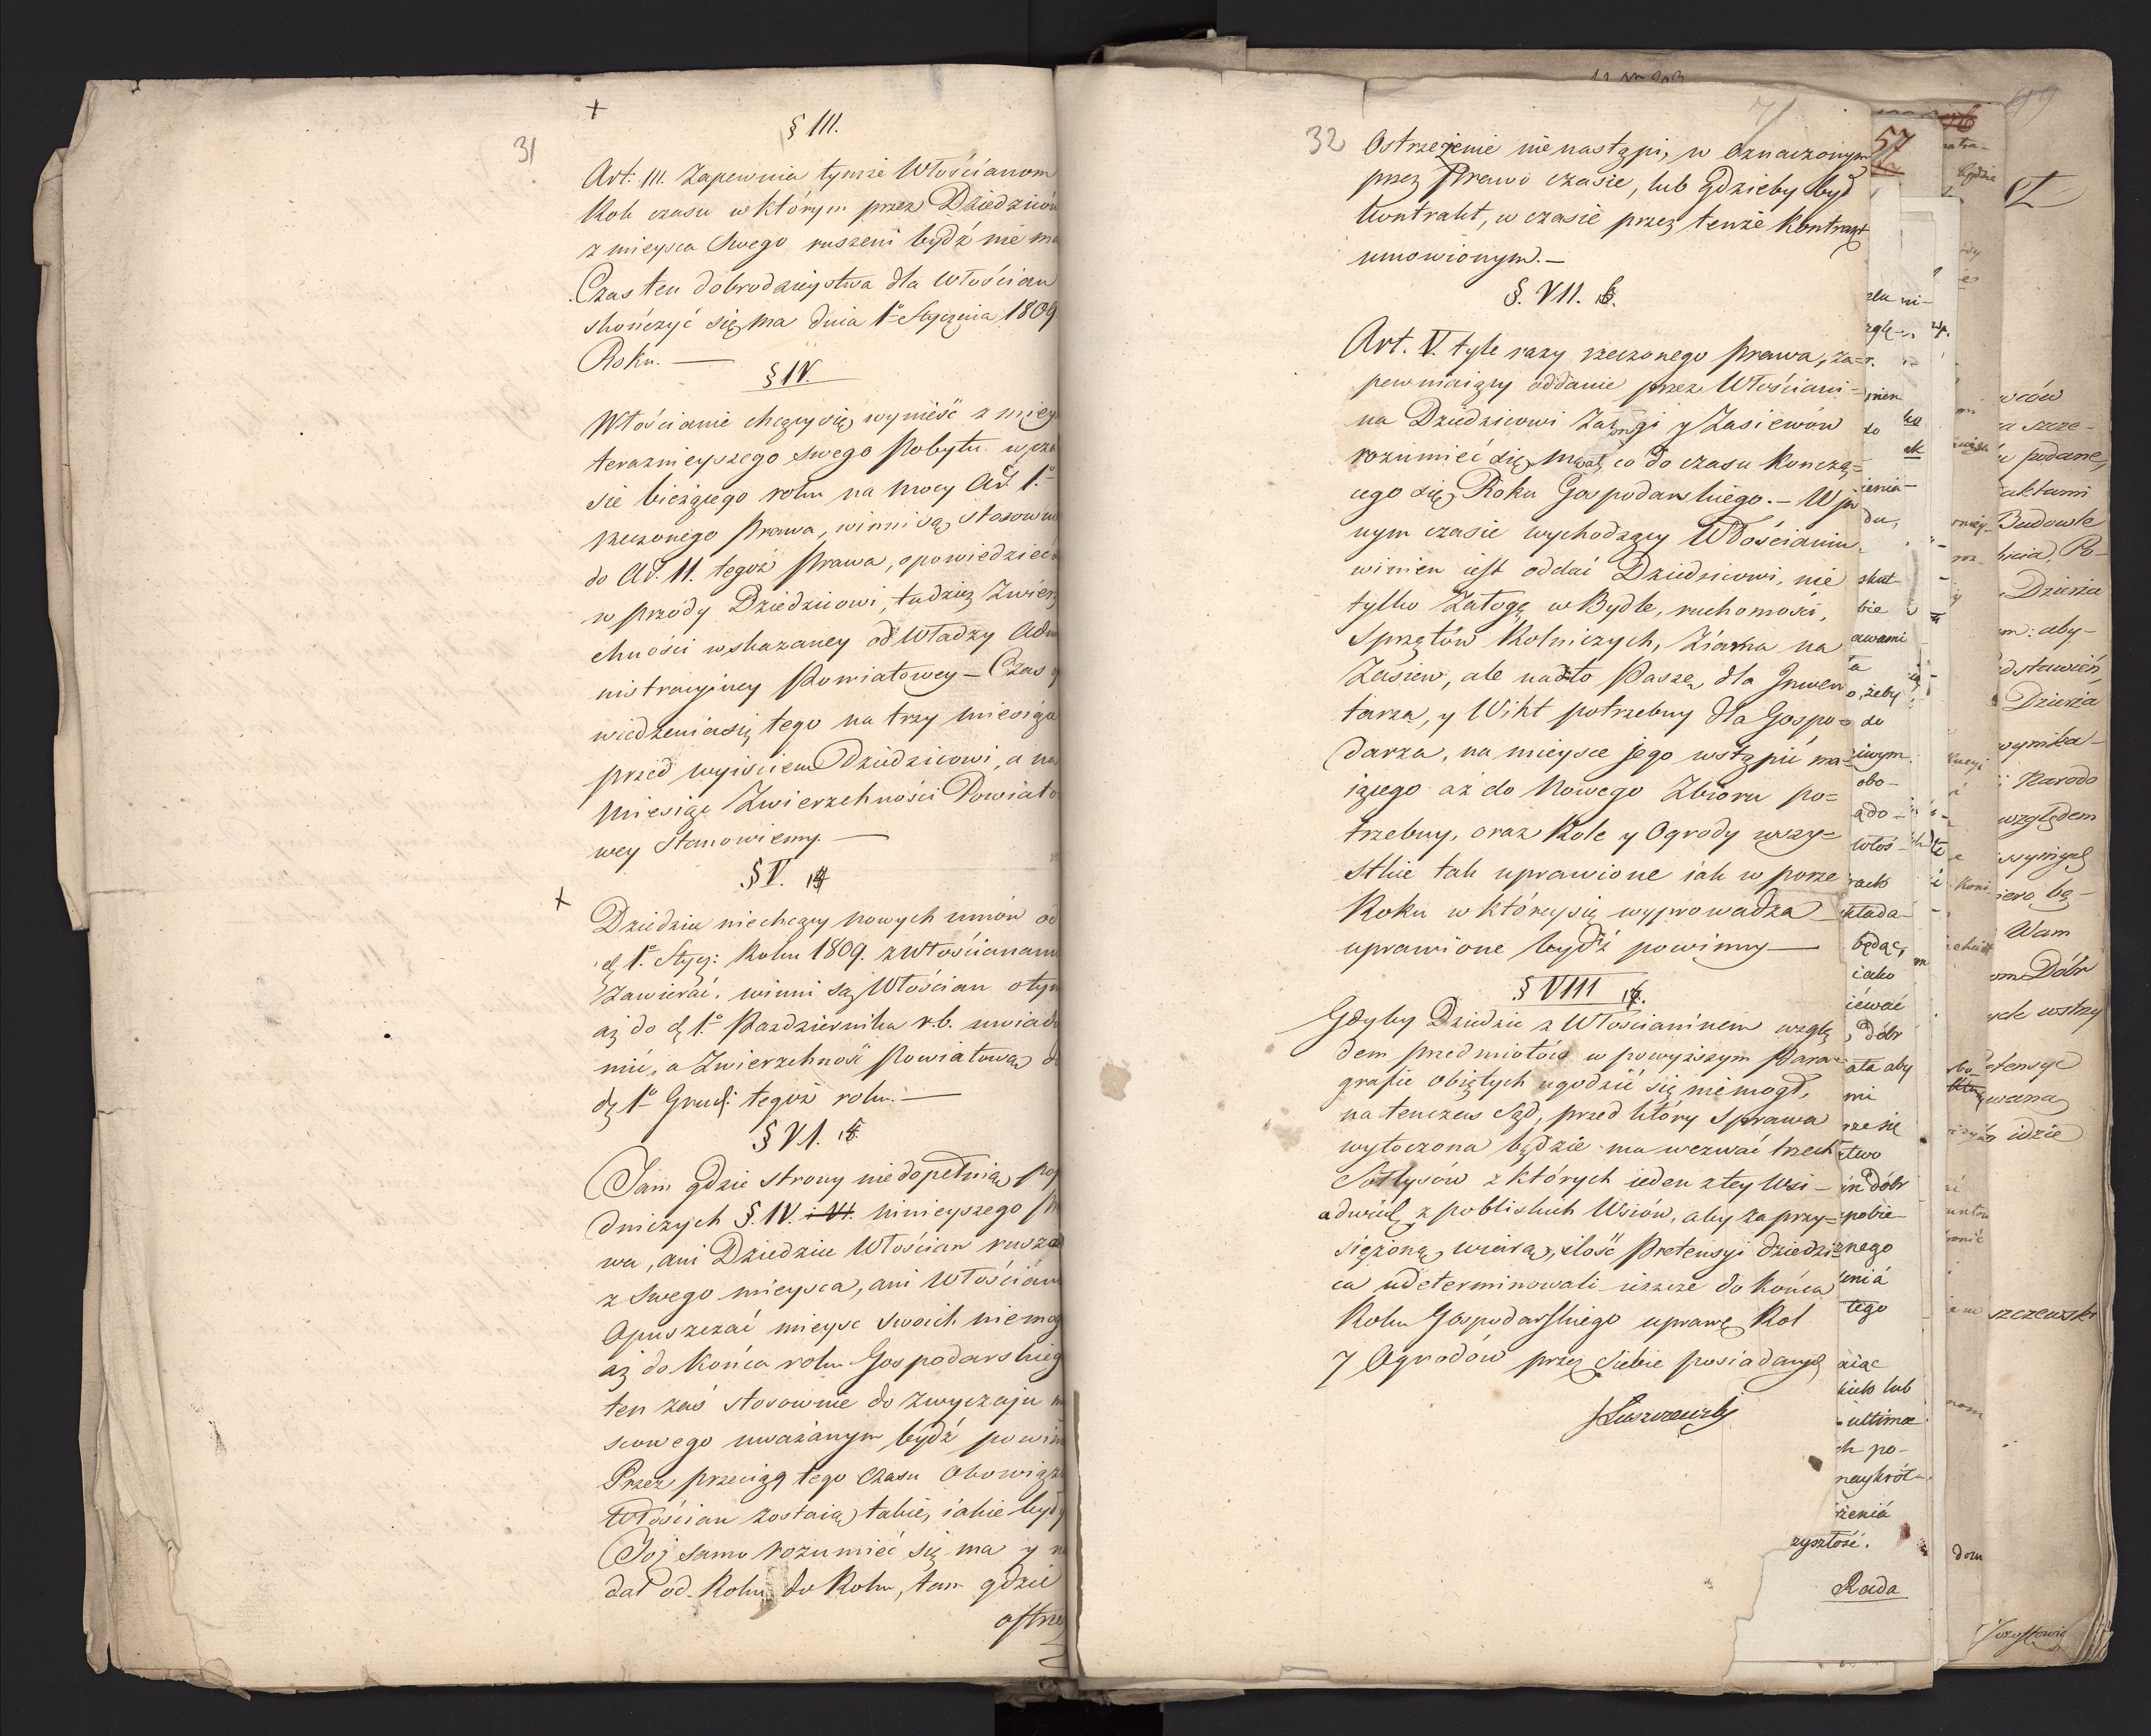 +
31
§ III.
Art. III. Zapewnia tymże Włościanom
Rok czasu w którym przez Dziedziców
z mieysca Swego ruszeni bydź nie ma
Czas ten dobrodzieystwa dla Włościan
skończyć się ma dnia 1º Stycznia 1809
Roku. —
§ IV.
Włościanie chcący się wynieść z miey
teraznieyszego swego Pobytu w cza
sie bieżącego roku na mocy Art. 1º
rzeczonego Prawa, winni są stosown
do Art. II. tegoż Prawa, opowiedzieć
w przódy Dziedzicowi, tudzież Zwierz
chności wskazaney od Władzy Adm
nistracyiney Powiatowey — Czas
wiedzenia się tego na trzy miesiące
przed wyiściem Dziedzicowi, a na
Miesiąc Zwierzchności Powiato
wey stanowiemy. —
§ V.
+
Dziedzice niechcący nowych umów od
d. 1º Stycz: Roku 1809. z Włościanami
Zawierać, winni są Włościan o tym
aż do d. 1º Pazdziernika r.b. uwiado
mić, a Zwierzchność Powiatową do
d. 1º Grud: tegoż roku. —
§ VI. 5.
Tam gdzie strony niedopełnią po
dniczych §. IV. i VI. ninieyszego P
wa, ani Dziedzice Włościan rusza
z Swego mieysca, ani Włościan
Opuszczać mieysc swoich niemog
aż do Końca roku Gospodarskieg
ten zaś stosownie do zwyczaju m
scowego uważanym bydź powin
Przez przeciąg tego Czasu Obowiąz
Włościan zostaią takie, iakie były
Toż samo rozumieć się ma y n
dal od Roku do Roku, tam gdzie
ostrze
32
Ostrzeżenie nie nastąpi, w Oznaczonym
przez Prawo czasie, lub gdzieby był
kontrakt, w czasie przez tenże Kontrakt
umowionym. —
§. VII. 6.
Art. V. tyle razy rzeczonego Prawa, za=
pewniaiący oddanie przez Włościani=
na Dziedzicowi Załogi y Zasiewów
rozumieć się ma co do czasu Kończą=
cego się Roku Gospodarskiego. — W
nym czasie wychodzący Włościanin
winien iest oddać Dziedzicowi, nie
tylko Załogę w Bydle, ruchomości,
Sprzętów Rolniczych, Ziarna na
Zasiew, ale nadto Paszę, dla Inwen
tarza, y Wikt potrzebny dla Gospo=
darza, na mieysce jego wstąpić ma=
iącego aż do Nowego Zbioru po=
trzebny, oraz Role y Ogrody wszy=
stkie tak uprawione iak w porze
Roku w którey się wyprowadza
uprawione bydź powinny —
§ VIII
Gdyby Dziedzic z Włościaninem wzglę
dem przedmiotów w powyższym Para=
grafie Obiętych ugodzić się niemogł,
na tenczas Sąd, przed który Sprawa
wytoczona będzie ma wezwać trzech
Sołtysów z których ieden z tey Wsi —
a dwóch z pobliskich Wsiów, aby za przy=
sięzoną wiarą, ilość Pretensyi Dziedzi=
ca udeterminowali ieszcze do Końca
Roku Gospodarskiego uprawę Rol
y Ogrodów przez Siebie posiadanych
Łuszczewski
57
skut-
bie
awami
o, żeby
do
obo-
włos-
rack
kłada-
będąc,
iako
iéwać
dóbr
ata aby
mi
dóbr
pobie-
znego
tego
kieto lub
ultimæ
ch po-
naykrót-
żenia
zyszłość.
Rada
dom
wców
a szcze-
podane,
aktami
Budowle
Dzierża
aby-
dstawień
Dzierża
wynika-
Narodo
względem
Wam
Dóbr
wstrzy
etensye
idzie
szczewski